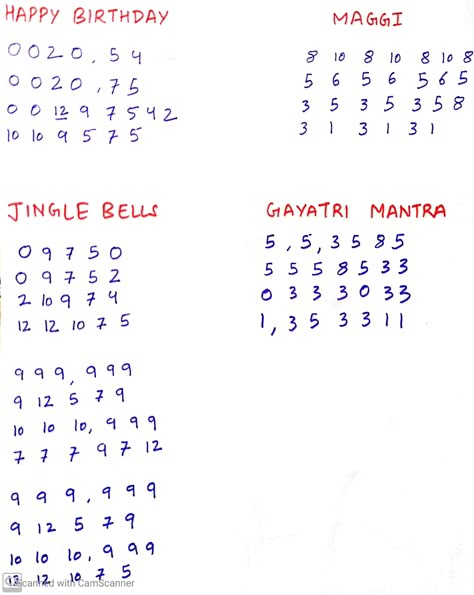 HAPPY BIRTHDAY
0 0 2 0 , 5 4
0 0 2 0 , 7 5
0 0 12 9 7 5 4 2
10 10 9 5 7 5
MAGGI
8 10 8 10 8 10 8
5 6 5 6 5 6 5
3 5 3 5 3 5 8
3 1 3 1 3 1
JINGLE BELLS
0 9 7 5 0
0 9 7 5 2
2 10 9 7 4
12 12 10 7 5
9 9 9 , 9 9 9
9 12 5 7 9
10 10 10 , 9 9 9
7 7 7 9 7 12
9 9 9 , 9 9 9
9 12 5 7 9
10 10 10 , 9 9 9
12 12 10 7 5
GAYATRI MANTRA
5 , 5 , 3 5 8 5
5 5 5 8 5 3 3
0 3 3 3 0 3 3
1 , 3 5 3 3 1 1
Scanned with CamScanner